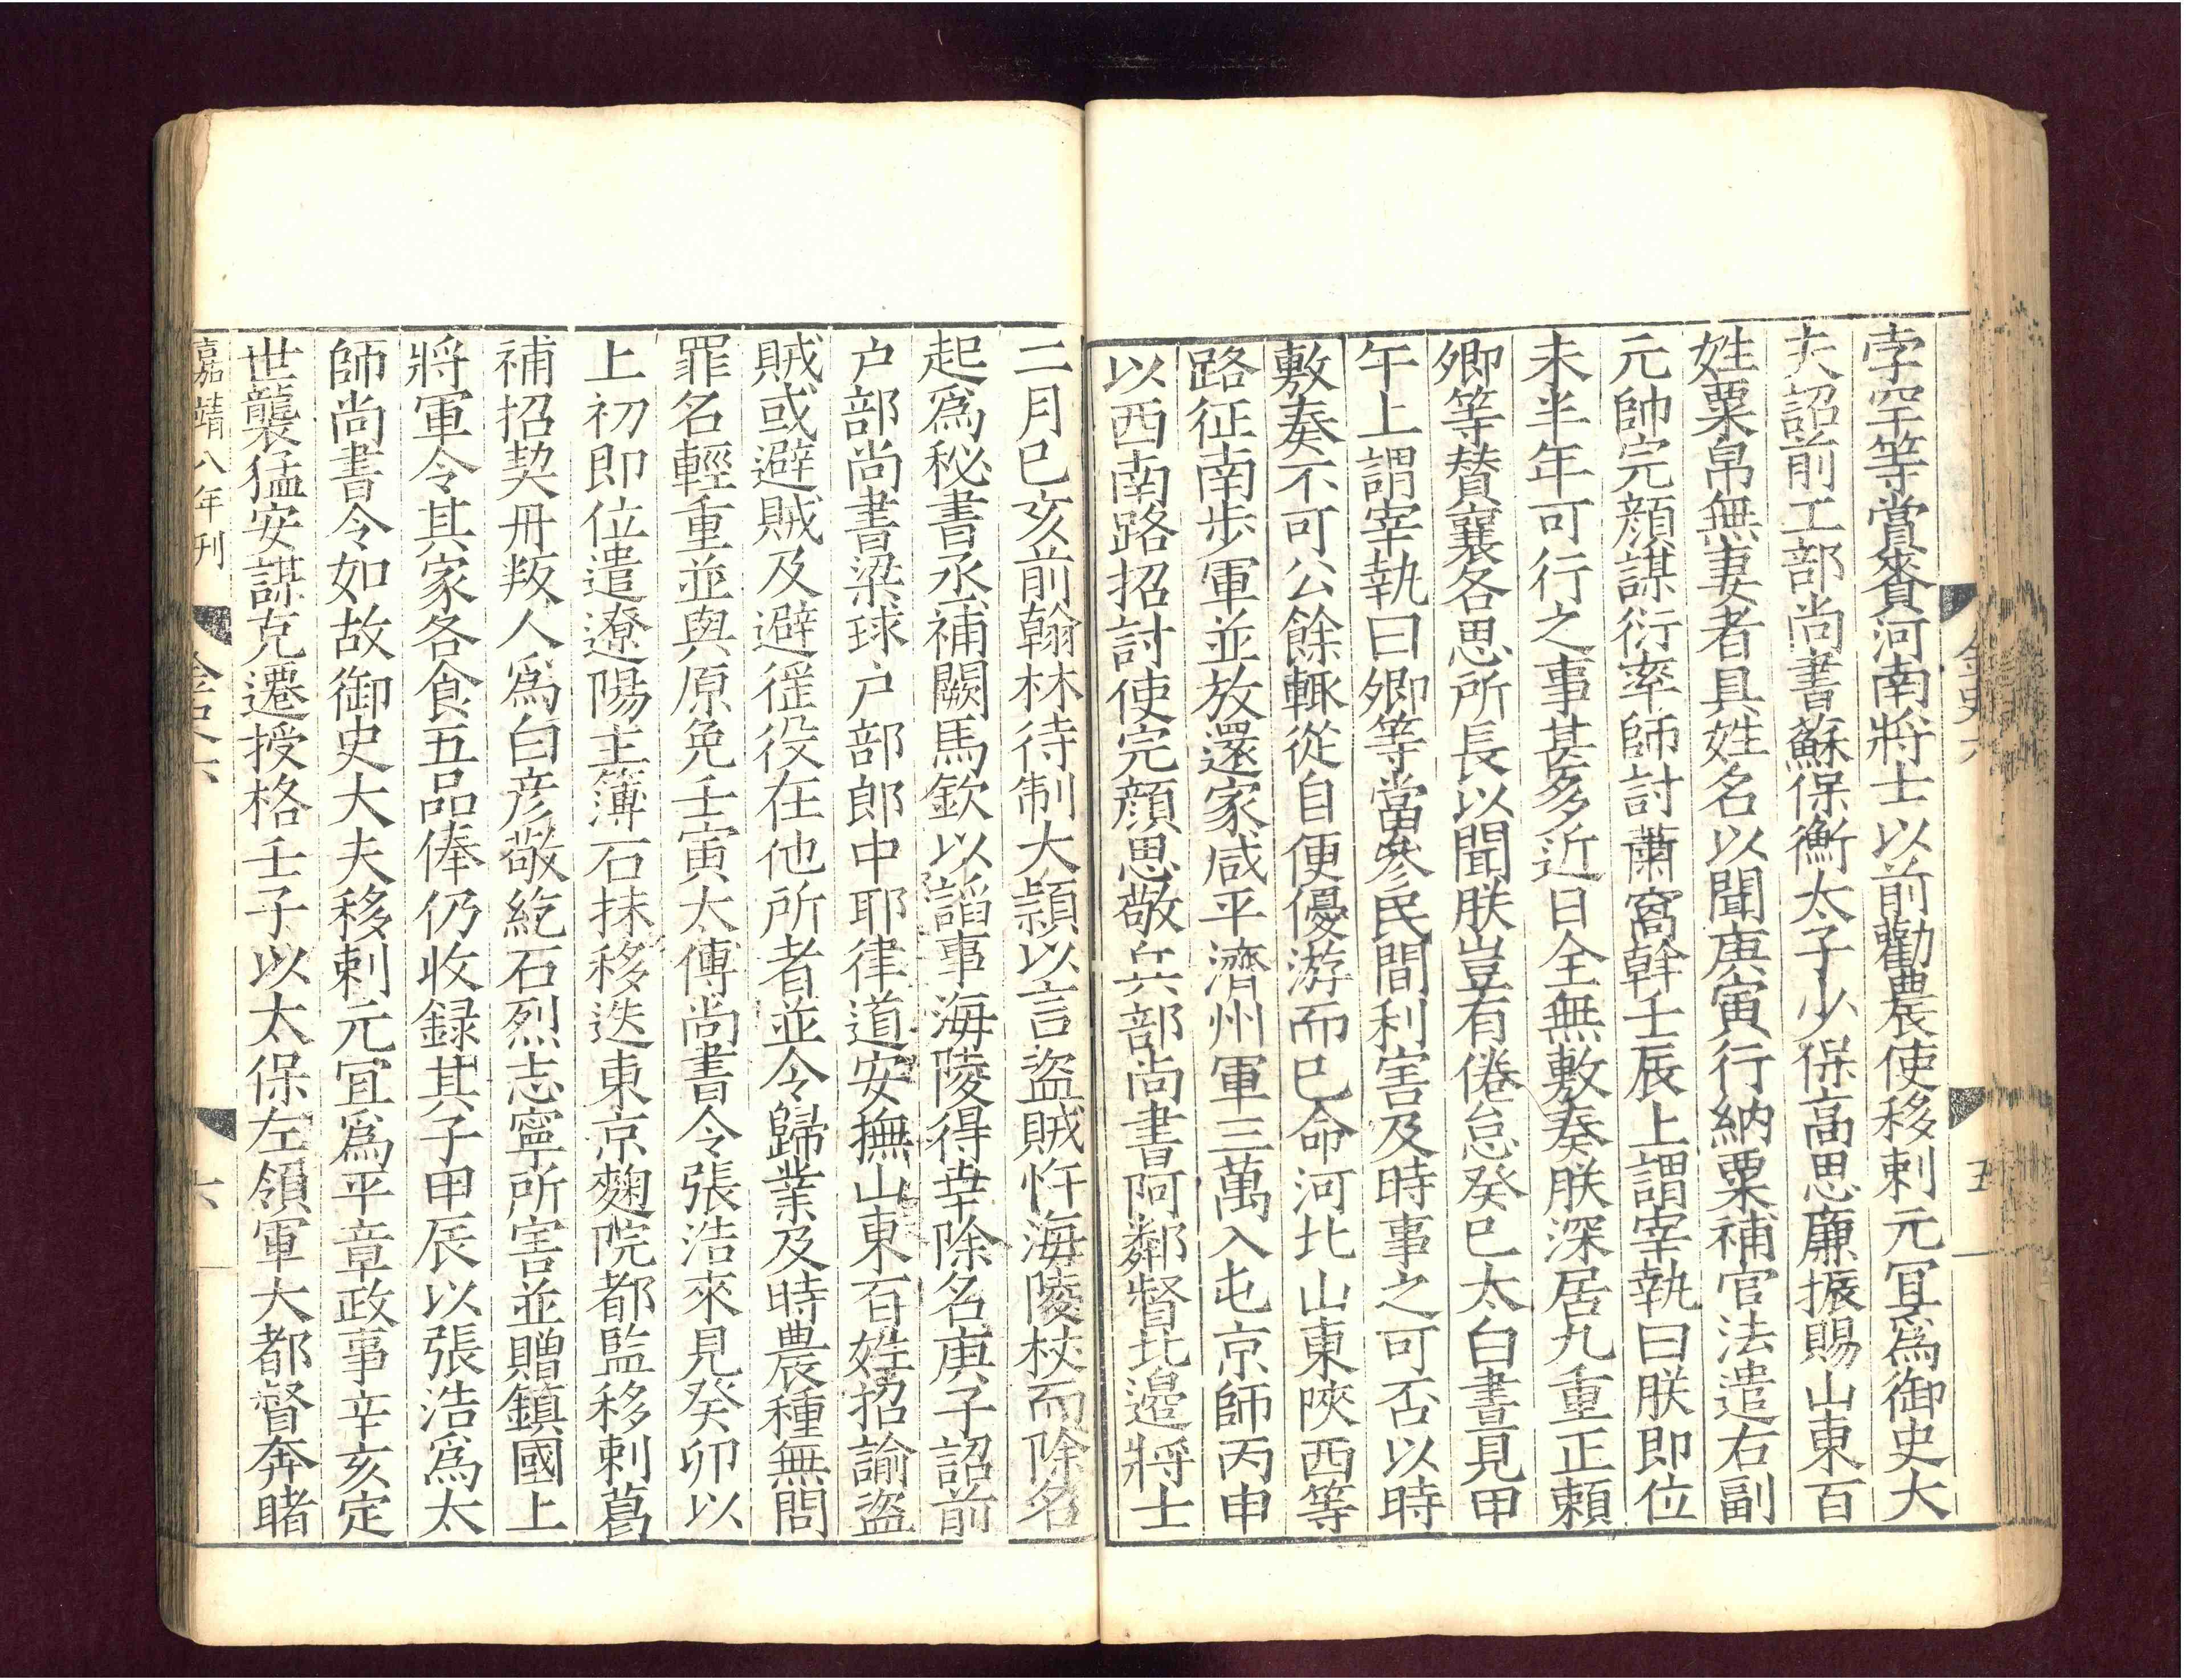 孛罕等賞賚河南將士以前勸農使移剌元冝爲御史大
夫詔前工部尚書蘇保衡太子少保高思廉振賜山東百
姓粟帛無妻者具姓名以聞庚寅行納粟補官法遣右副
元帥完顔謀衍率師討蕭窩幹壬辰上謂宰執曰朕即位
未半年可行之事甚多近日全無敷奏朕深居九重正頼
卿等賛襄各思所長以聞朕豈有倦怠癸巳太白晝見甲
午上謂宰執曰卿等當叅民間利害及時事之可否以時
敷奏不可公餘輙從自便優游而巳命河北山東陜西等
路征南歩軍並放還家咸平濟州軍三萬入屯京師丙申
以西南路招討使完顔思敬兵部尚書阿鄰督北邉將士
二月巳亥前翰林待制大頴以言盜賊忤海陵杖而除名
起爲秘書丞補闕馬欽以謟事海陵得幸除名庚子詔前
户部尚書梁球户部郎中耶律道安撫山東百姓招諭盜
賊或避賊及避徭役在他所者並令歸業及時農種無問
罪名輕重並與原免壬寅太傅尚書令張浩來見癸卯以
上初即位遣遼陽主簿石抹移迭東京麴院都監移剌葛
補招契丹叛人爲白彦敬紇石烈志寧所害並贈鎮國上
將軍令其家各食五品俸仍收録其子甲辰以張浩爲太
師尚書令如故御史大夫移剌元冝爲平章政事辛亥定
世襲猛安謀克遷授格壬子以太保左領軍大都督奔睹
嘉靖八年刋
金史六
六
金史六
五